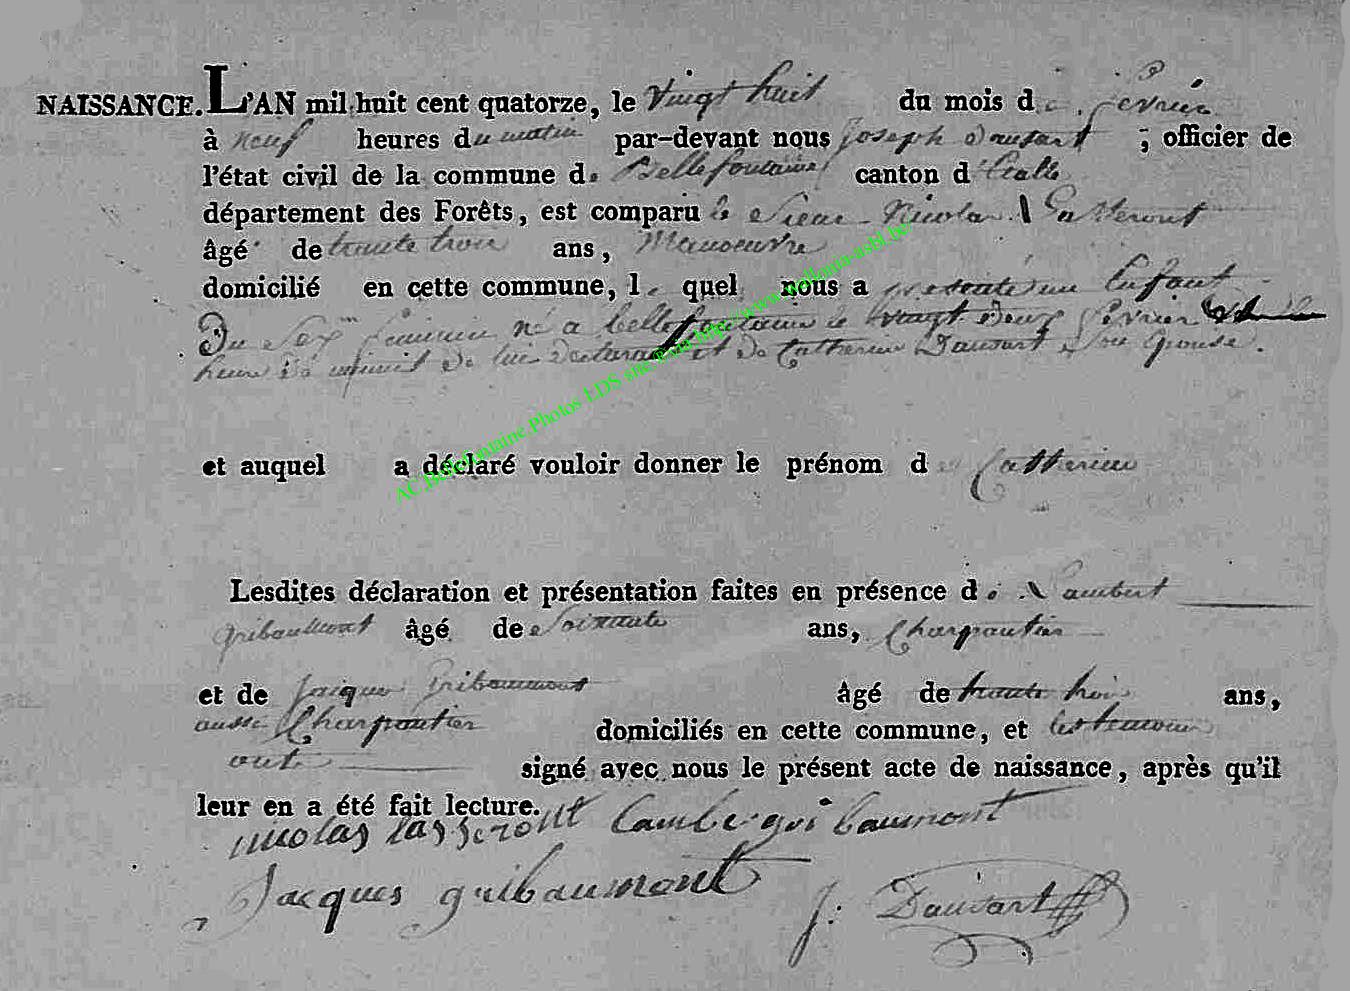 NAISSANCE. L'AN mil huit cent quatorze, le vingt huit du mois de fevrier
à neuf heures du matin par-devant nous Joseph Dausart ; officier de
l'état civil de la commune de Bellefontaine canton d'Etalle
département des Forêts, est comparu le Sieur Nicolas Lasseront
âgé de trante trois ans, Manoeuvre
domicilié en cette commune, lequel nous a presenté un Enfant
Du Sex feminin né a bellefontaine le vingt deux fevrier
heure de minuit de lui declarant et de Catherine Dausart Son Epouse.
et auquel a déclaré vouloir donner le prénom de Catherine
Lesdites déclaration et présentation faites en présence de Lambert
gribaumont âgé de Soixante ans, Charpantier
et de Jacque Gribaumont âgé de trante trois ans,
aussi Charpantier domiciliés en cette commune, et les temoins
onts signé avec nous le présent acte de naissance, après qu'il
leur en a été fait lecture.
nicolas lasseront Lambe gribaumont
Jacques gribaumont J: Dausart
AC Bellefontaine Photos LDS site http://www.wallonia-asbl.be/